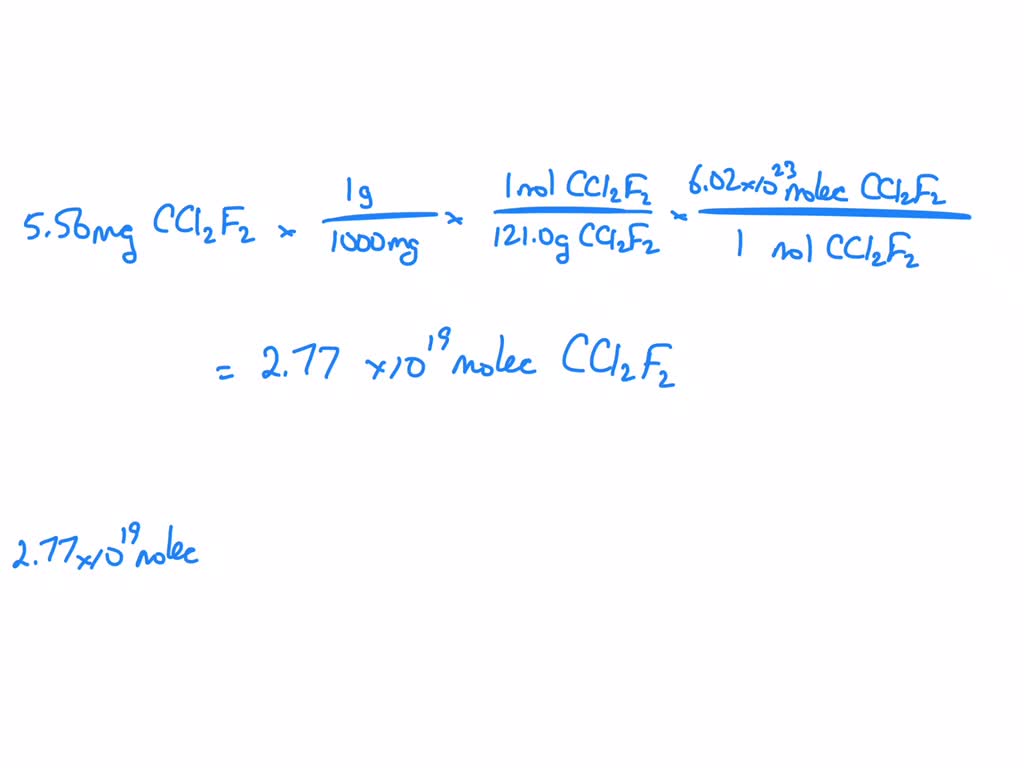 5.56mg CCl₂F₂ × 1g/1000mg × 1 mol CCl₂F₂/121.0g CCl₂F₂ × 6.02×10²³ molec CCl₂F₂/1 mol CCl₂F₂
= 2.77 ×10¹⁹ molec CCl₂F₂
2.77×10¹⁹ molec